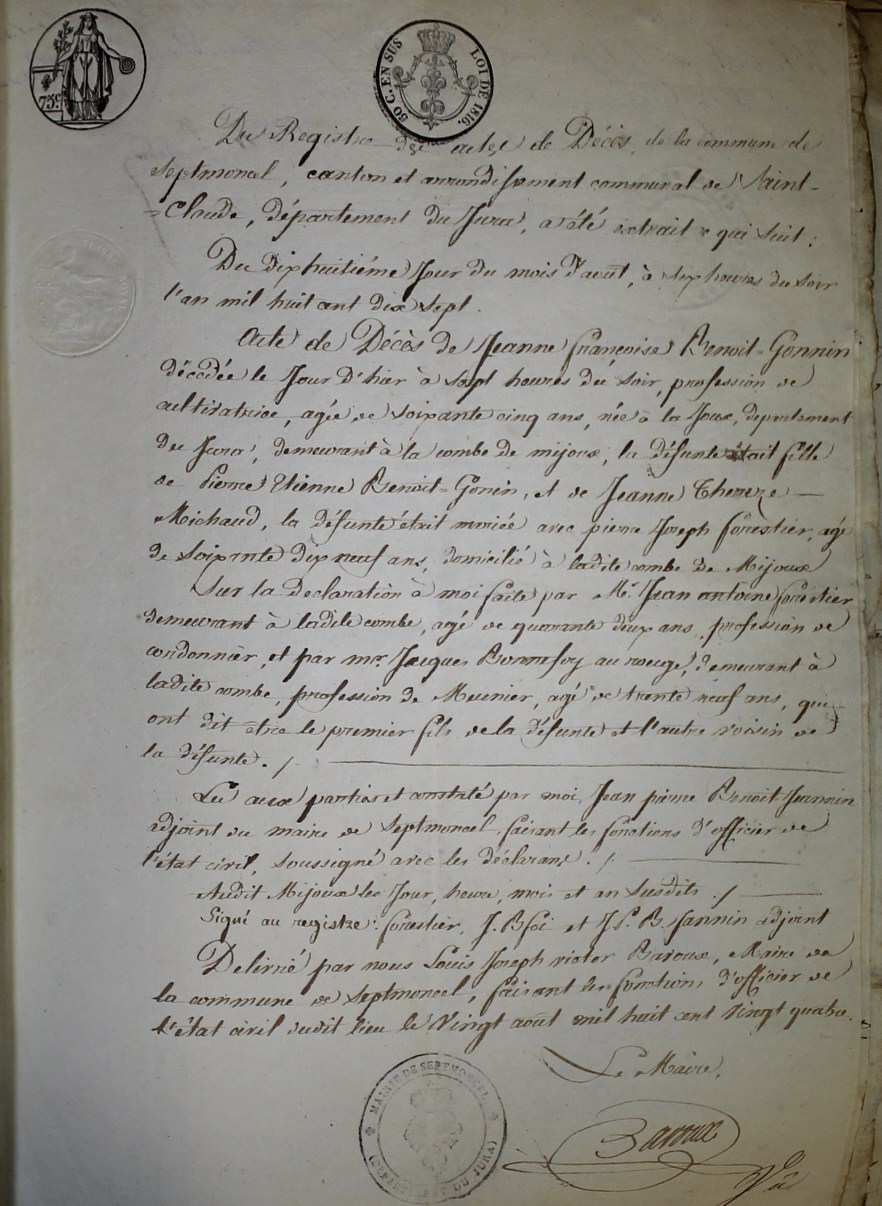 75c
50 C. EN SUS LOI DE 1816.
Du Registre des actes de Décès de la commune de
Septmoncel, canton et arrondissement communal de Saint-
=Claude, département du Jura, a été extrait ce qui suit:
Du dixhuitiéme Jour du mois d'août, à sept heures du soir
l'an mil huit cent dix sept.
Acte de Décès de Jeanne françoise Benoit-Gonnin
décédée le Jour d'hier à Sept heures du soir, profession de
cultivatrice, agée de soixante cinq ans, née à la Joux, département
du Jura, demeurant à la combe de mijoux, la défunte était fille
de Pierre Etienne Benoit-Gonin, et de Jeanne Thereze
Michaud, la défunte était mariée avec pierre Joseph forestier, agé
de Soixante dix neuf ans, domicilié à ladite combe de Mijoux
Sur la declaration à moi faite par Mr Jean antoine forestier
demeurant à ladite combe, agé de quarante deux ans, profession de
cordonnier, et par mr Jacques Bonnefoy au rouge, demeurant à
ladite combe, profession de Meunier, agé de trente neuf ans, qui
ont dit être le premier fils de la défunte et l'autre voisin de
la défunte. /
Lu aux parties et constaté par moi, Jean pierre Benoit-Jeannin
adjoint du maire de Septmoncel, faisant les fonctions d'officier de
l'état civil, soussigné avec les déclarans. /
Audit Mijoux les Jour, heure, mois et an susdits. /
Signé au registre: forestier, J. Bfoi et J P. B. Jannin adjoint
Delivré par nous Louis Joseph victor Baroux, Maire de
la commune de Septmoncel, faisant les fonctions d'officier de
l'état civil dudit lieu le Vingt août mil huit cent vingt quatre.
Le Maire,
MAIRIE DE SEPTMONCEL
DU JURA)
Baroux